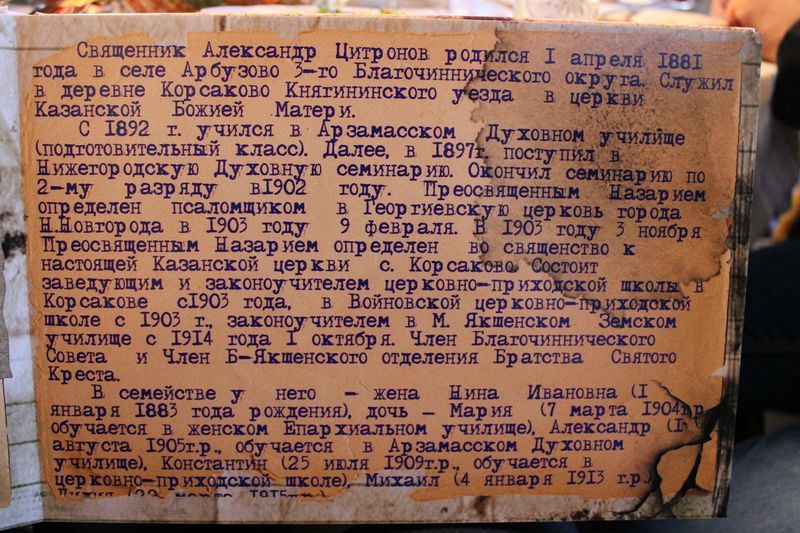 Священник Александр Цитронов родился I апреля 1881
года в селе Арбузово 3-го Благочиннического округа. Служил
в деревне Корсаково Княгининского уезда в церкви
Казанской Божией Матери.
С 1892 г. учился в Арзамасском Духовном училище
(подготовительный класс). Далее, в 1897г. поступил в
Нижегородскую Духовную семинарию. Окончил семинарию по
2-му разряду в1902 году. Преосвященным Назарием
определен псаломщиком в Георгиевскую церковь города
Н.Новгорода в 1903 году 9 февраля. В 1903 году 3 ноября
Преосвященным Назарием определен во священство к
настоящей Казанской церкви с. Корсаково Состоит
заведующим и законоучителем церковно-приходской школы в
Корсакове с1903 года, в Войновской церковно-приходской
школе с 1903 г., законоучителем в М. Якшенском Земском
училище с 1914 года I октября. Член Благочиннического
Совета и Член Б-Якшенского отделения Братства Святого
Креста.
В семействе у него - жена Нина Ивановна (I
января 1883 года рождения), дочь - Мария (7 марта 1904г.р.
обучается в женском Епархиальном училище), Александр (I
августа 1905г.р., обучается в Арзамасском Духовном
училище), Константин (25 июля 1909г.р., обучается в
церковно-приходской школе), Михаил (4 января 1913 г.р.)
Лидия (22 марта 1915г.р.)